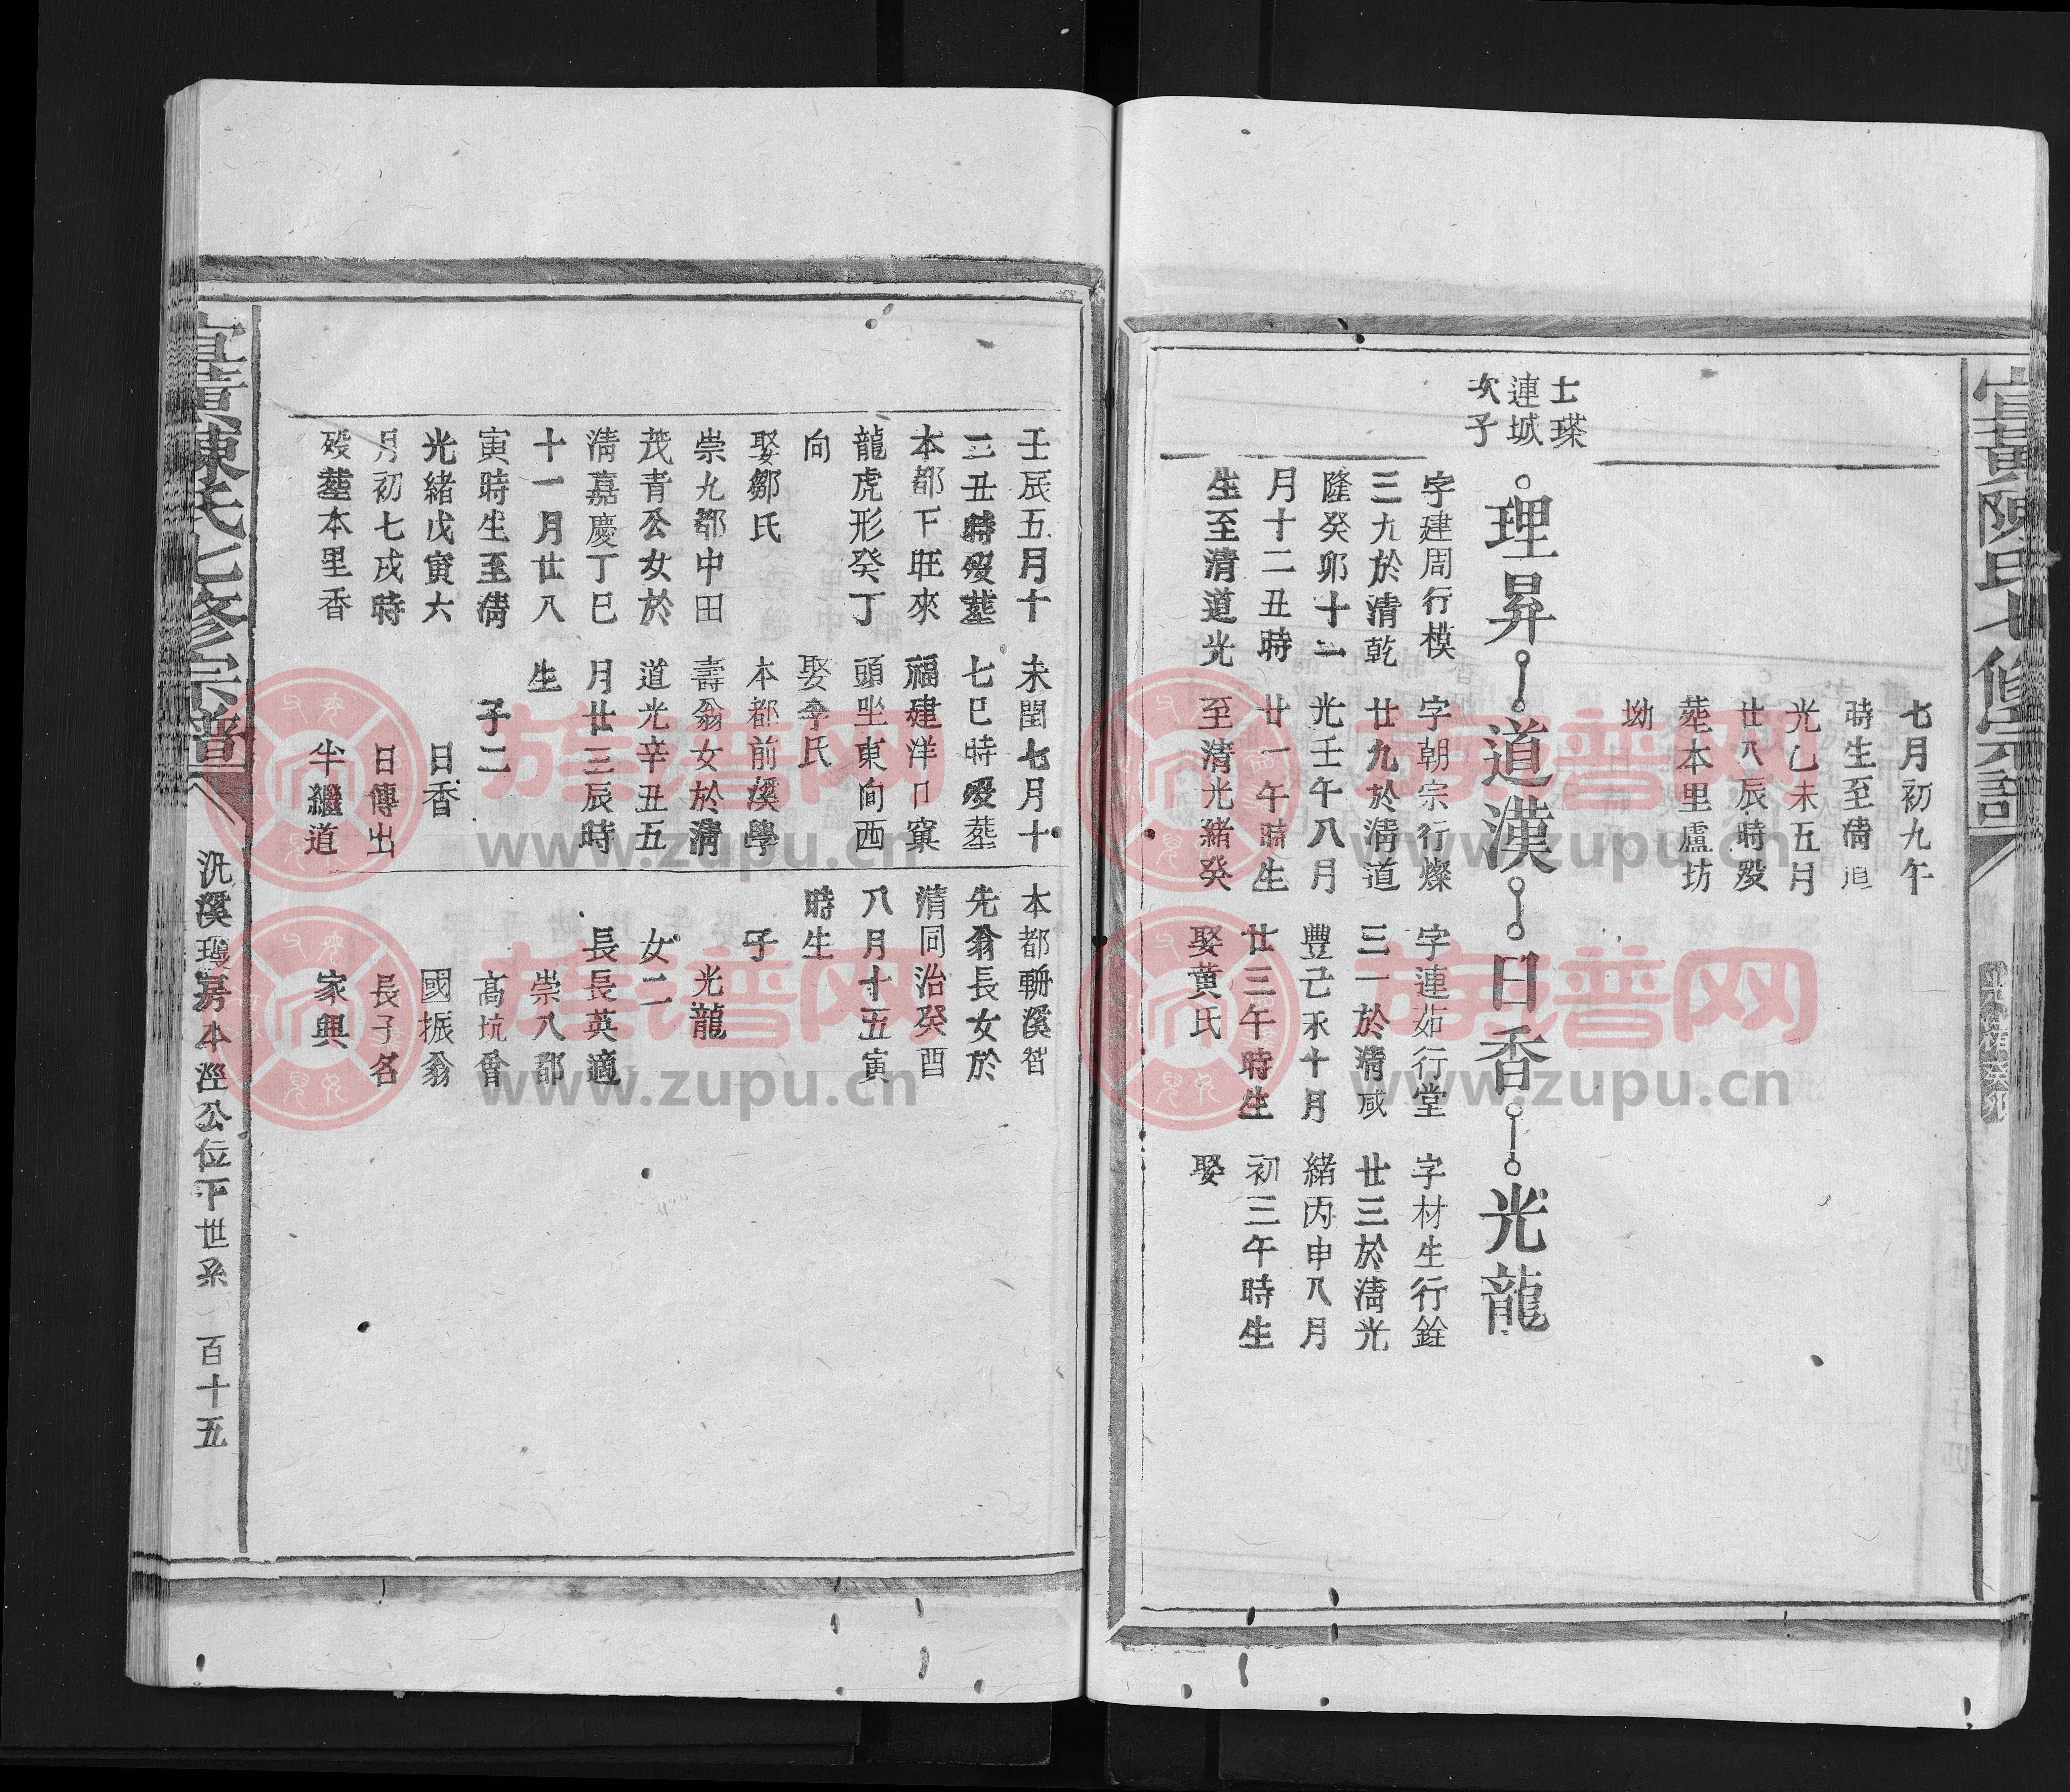 宜黃陳氏七修宗譜
光緒癸卯
七月初九午
時生至清道
光乙未五月
廿八辰時歿
葬本里盧坊
坳
士瑹
連城
次子
理昇
道漢
日香
光龍
字建周行模
三九於清乾
隆癸卯十二
月十二丑時
生至清道光
字朝宗行燦
廿九於清道
光壬午八月
廿一午時生
至清光緒癸
字連茹行堂
三一於清咸
豐己亥十月
廿三午時生
娶黃氏
字材生行銓
廿三於清光
緒丙申八月
初三午時生
娶
壬辰五月十
二丑時歿葬
本都下旺來
龍虎形癸丁
向
娶鄒氏
崇九都中田
茂青公女於
清嘉慶丁巳
十一月廿八
寅時生至清
光緒戊寅六
月初七戌時
歿葬本里香
未閏七月十
七巳時歿葬
福建洋口窠
頭坐東向西
娶李氏
本都前溪學
壽翁女於清
道光辛丑五
月廿三辰時
生
子二
日香
日傳出
半繼道
本都軿溪智
先翁長女於
清同治癸酉
八月十五寅
時生
子
光龍
女二
長長英適
崇八都
高坑曾
國振翁
長子名
家興
宜黃陳氏七修宗譜
氿溪瓊房本淫公位下世系
百十五
族谱网
www.zupu.cn
族谱网
www.zupu.cn
族谱网
www.zupu.cn
族谱网
www.zupu.cn